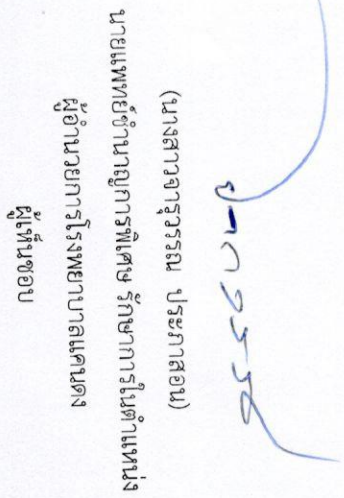 (นางสาวจารุวรรณ ประภาสอน)
นายแพทย์ชำนาญการพิเศษ รักษาการในตำแหน่ง
ผู้อำนวยการโรงพยาบาลแคนดง
ผู้เห็นชอบ